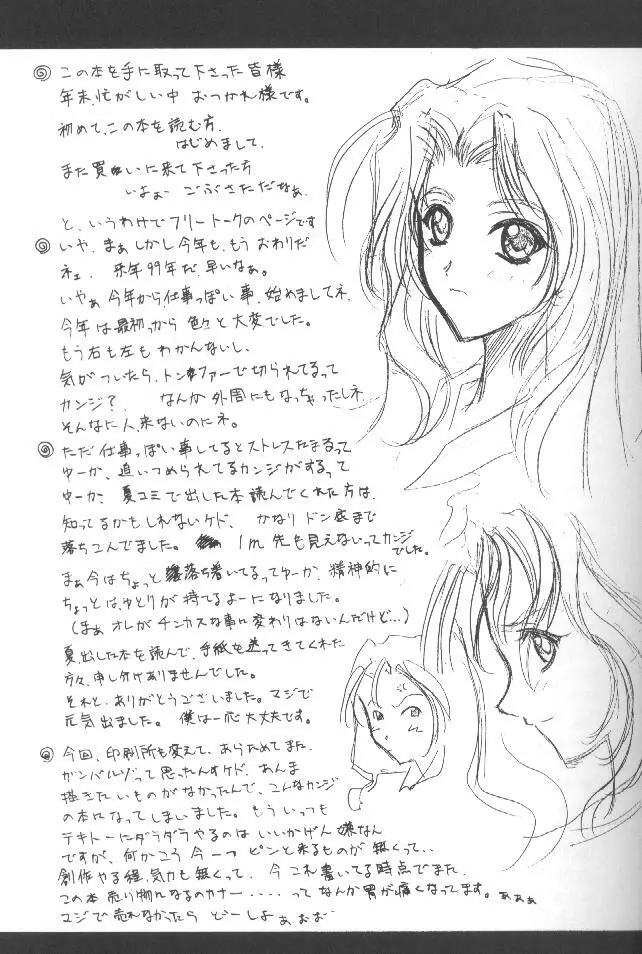 この本を手に取って下さった皆様
年末、忙がしい中 おつかれ様です。
初めて、この本を読む方、
はじめまして、
また買いに来て下さった方
いよぉー ごぶさただなぁ、
と、いうわけでフリートークのページです
いや、まぁしかし今年も、もう おわりだ
ネェ、 来年99年だ 早いなぁ。
いやぁ 今年から仕事っぽい事、始めましてネ、
今年は最初っから 色々と大変でした。
もう右も左もわかんないし、
気がついたら、トンファーで切られてるって
カンジ? なんか 外周にもなっちゃったしネ、
そんなに人、来ないのにネ。
ただ 仕事っぽい事してるとストレスたまるって
ゆーか、追いつめられてるカンジがするって
ゆーか、 夏コミで出した本 読んでくれた方は、
知ってるかもしれないケド、 かなり ドン底まで
落ちこんでました。 1m 先も見えないってカンジ
でした。
まぁ今はちょっと 落ち着いてるってゆーか、精神的に
ちょっとは、ゆとりが持てるよーになりました。
(まぁ オレがチンカスな事に変わりはないんだけど…)
夏、出した本を読んで、手紙を送ってきてくれた
方々、申し分けありませんでした。
それと、ありがとうございました。マジで
元気出ました。 僕は一応大丈夫です。
今回、印刷所も変えて、あらためてまた、
ガンバルゾって思ったんすケド、あんま
描きたいものがなかったんで、こんなカンジ
の本になってしまいました。もういつも
テキトーにダラダラやるのは いいかげん 嫌なん
ですが、何かこう 今一つ ピンと来るものが 無くって‥
創作やる程、気力も無くって、 今 これ書いてる時点でまた、
この本 売り物になるのカナー‥‥‥ って なんか 胃が痛くなってます。ぁぁぁ
マジで売れなかったら どーしよ ぉ ぉ ぉ